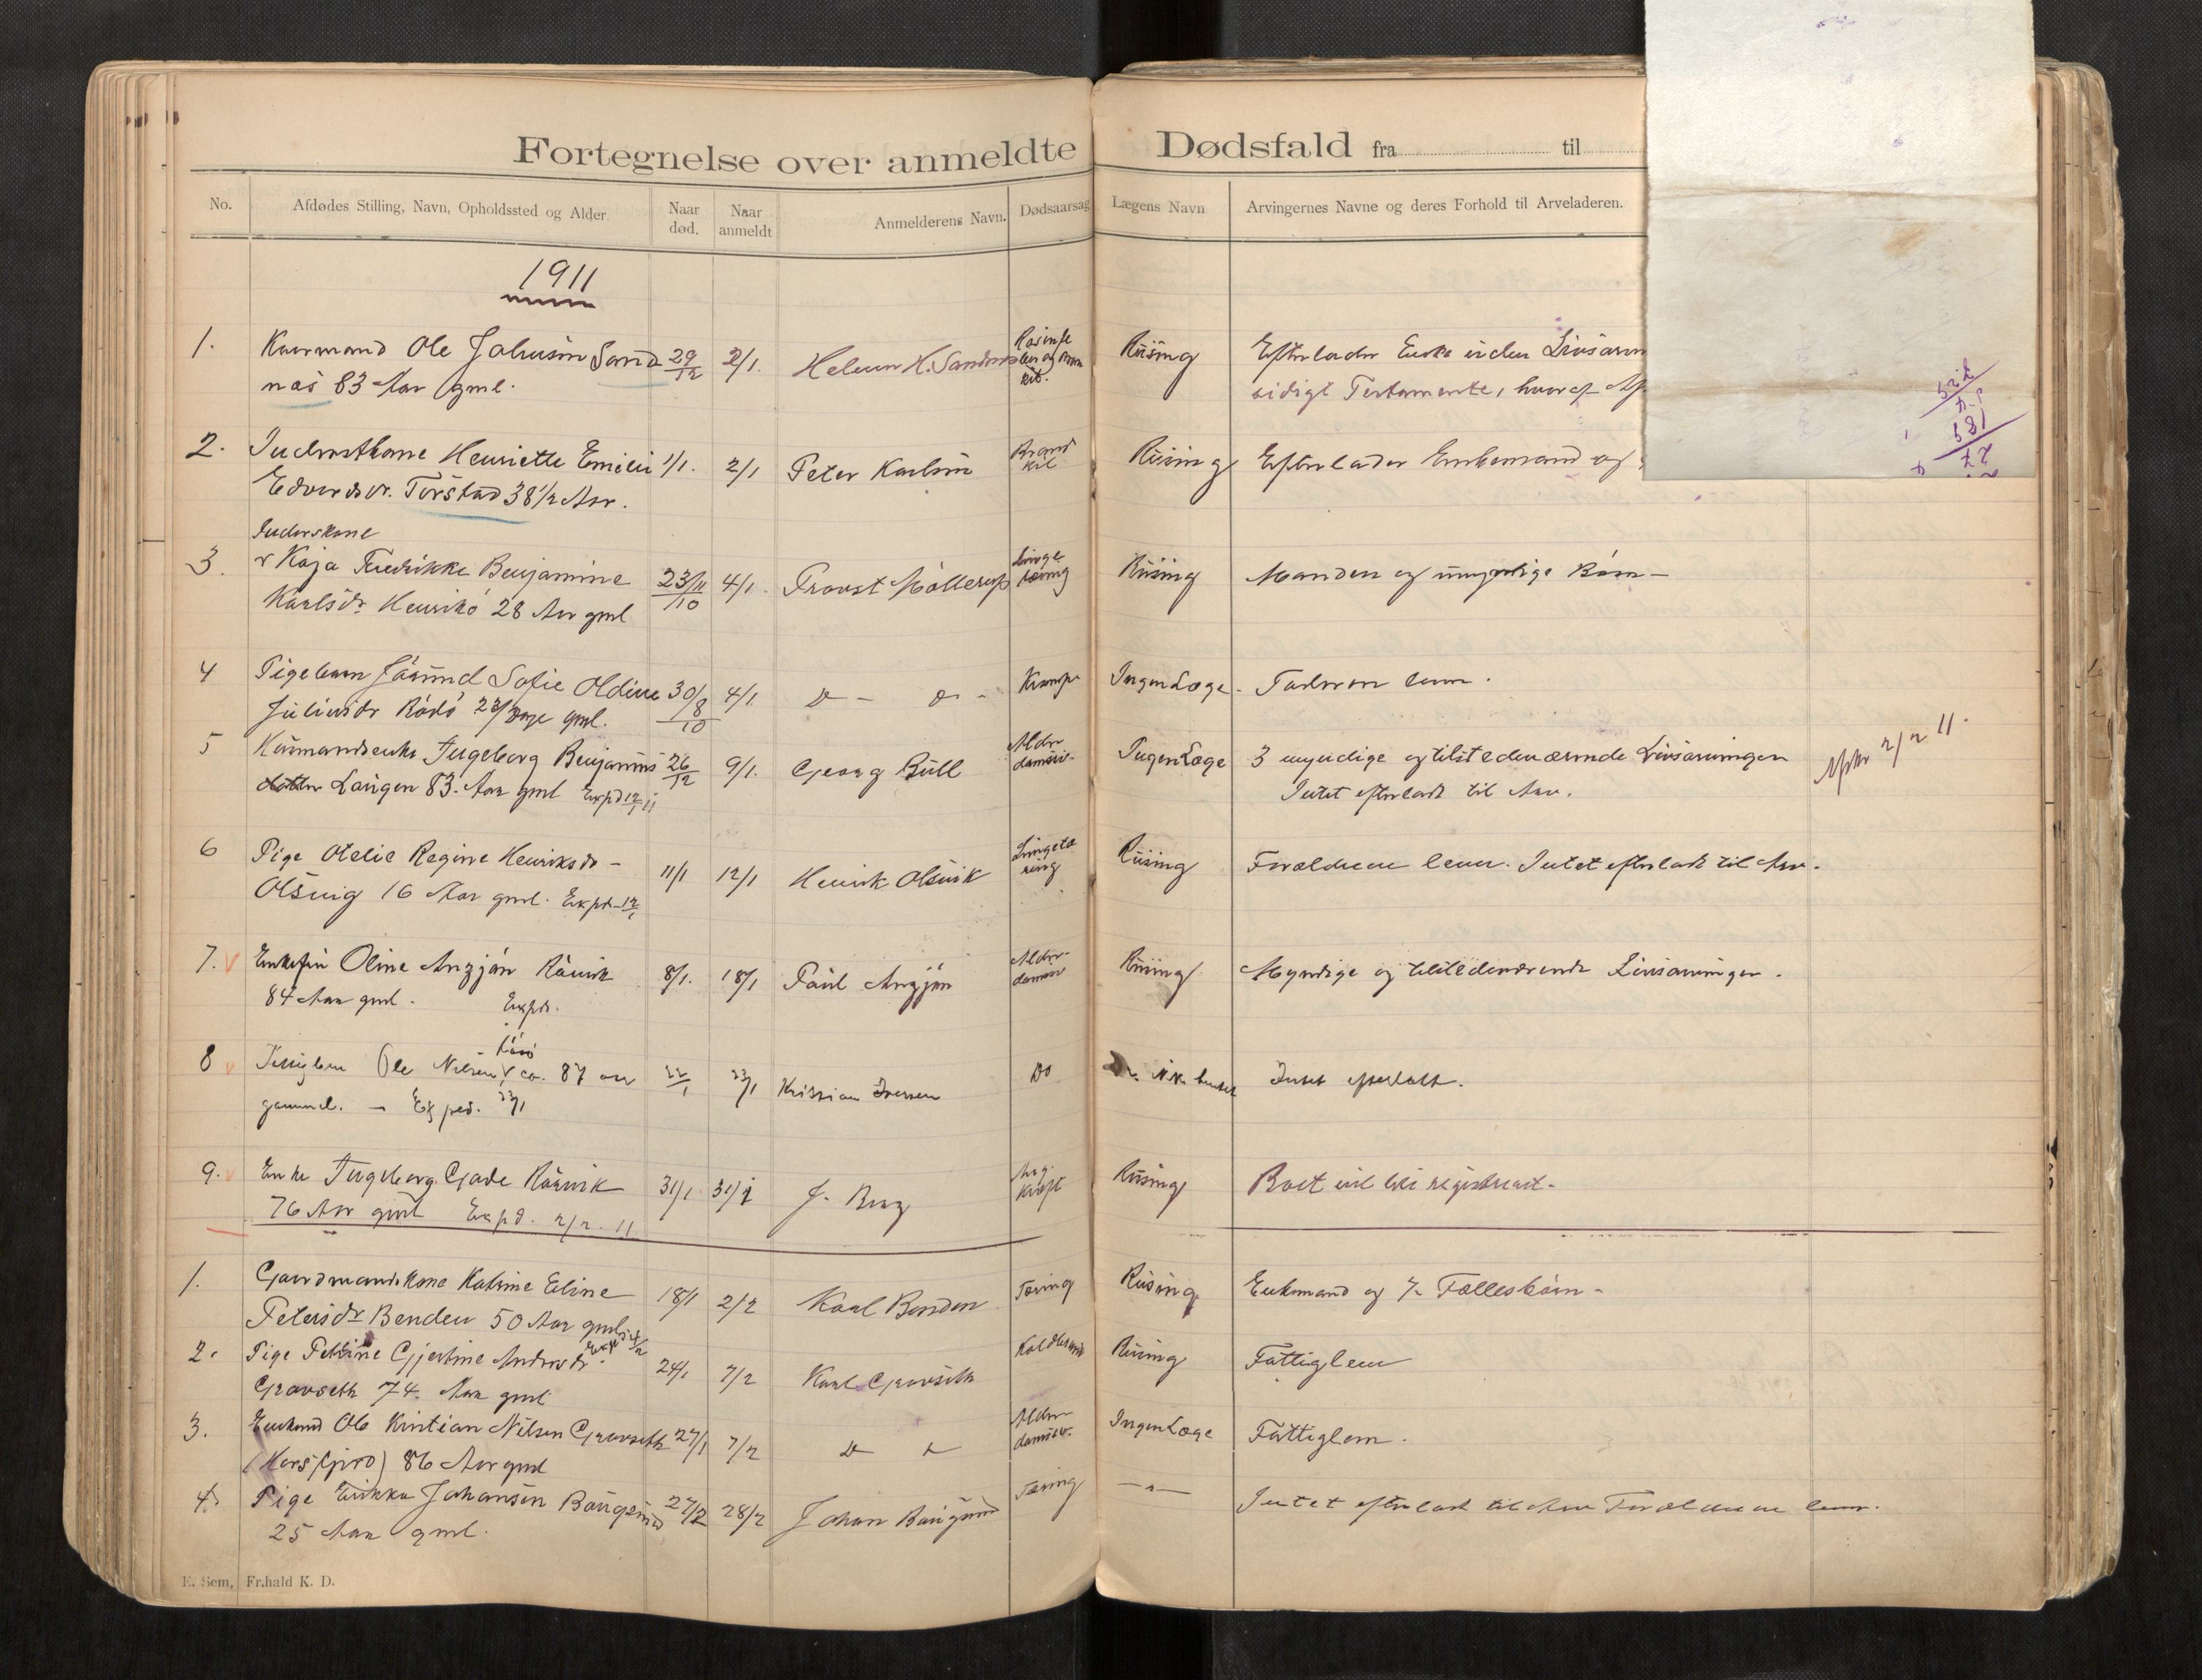 Fortegnelse over anmeldte Dødsfald fra til
No. Afdødes Stilling, Navn, Opholdssted og Alder Naar død. Naar anmeldt Anmelderens Navn. Dødsaarsag Lægens Navn Arvingernes Navne og deres Forhold til Arveladeren.
1911
1. Kaarmand Ole Johnsen Sand 29/12 2/1. Helene H. Sandnes Rüsing Efterlader Enke uden Livsarv
nes 83 Aar gml. sidigt Testamente, hvoraf
2. Inderstkone Henriette Emilie 1/1. 2/1 Peter Karlsen Rüsing Efterlader Enkemand og
Edvardsdr. Torstad 38 1/2 Aar.
Inderskone
3. Kaja Fredrikke Benjamine 23/11/10 4/1. Provst Möllerup Lunge tæring Rüsing Manden og umyndige Børn -
Karlsdr Henrikö 28 Aar gml
4 Pigebarn Jörund Sofie Oldine 30/8/10 4/1 Do - Do - Krampe Ingen Læge. Faderen lever.
Juliusdr Rödö 23 Dage gml.
5 Kaarmandsenke Ingeborg Benjamins 26/12 9/1. Georg Büll Alderdomssv. Ingen Læge 3 myndige og tilstedeværende Livsarvinger
datter Langen 83. Aar gml Expd 12/1 11 Intet efterladt til Arv.
2/2 11.
6 Pige Otelie Regine Henriksdr - 11/1 12/1 Henrik Olsvik Lungetæring Rüsing Forældrene lever. Intet efterladt til Arv.
Olsvig 16 Aar gml. Expd. 12/1
7. Enkefru Oline Anzjön Rörvik 8/1. 18/1 Paul Anzjön Alderdomssv Rüsing Myndige og tilstedeværende Livsarvinger.
84 Aar gml. Expd.
8 Fattiglem Ole Nilsen, ca. 87 aar 22/1 23/1 Kristian Iversen Do Intet efterladt.
gammel. - Exped. 23/1
9. Enke Ingeborg Gjade Rörvik 31/1 31/1 J. Berg Kræft Rüsing Boet vil bli registreret.
76 Aar gml Expd. 2/2. 11
1. Gaardmandskone Katrine Eline 18/1 2/2 Karl Benden Tæring Rüsing Enkemand og 7 Fællesbørn -
Petersdr Benden 50 Aar gml.
2. Pige Petrine Gjertine Andersdr. 24/1 7/2 Karl Gravseth Koldbrand Rüsing Fattiglem
Gravseth 74 Aar gml
3. Enkemd Ole Kristian Nilsen Gravseth 27/1 7/2 Alderdomssv. Ingen Læge Fattiglem.
86 Aar gml
4. Pige Erikka Johansen 27/2 28/2 Johan Tæring - " - Intet efterladt til Arv Forældrene lever.
25 Aar gml.
E. Sem, Fr.hald K. D.